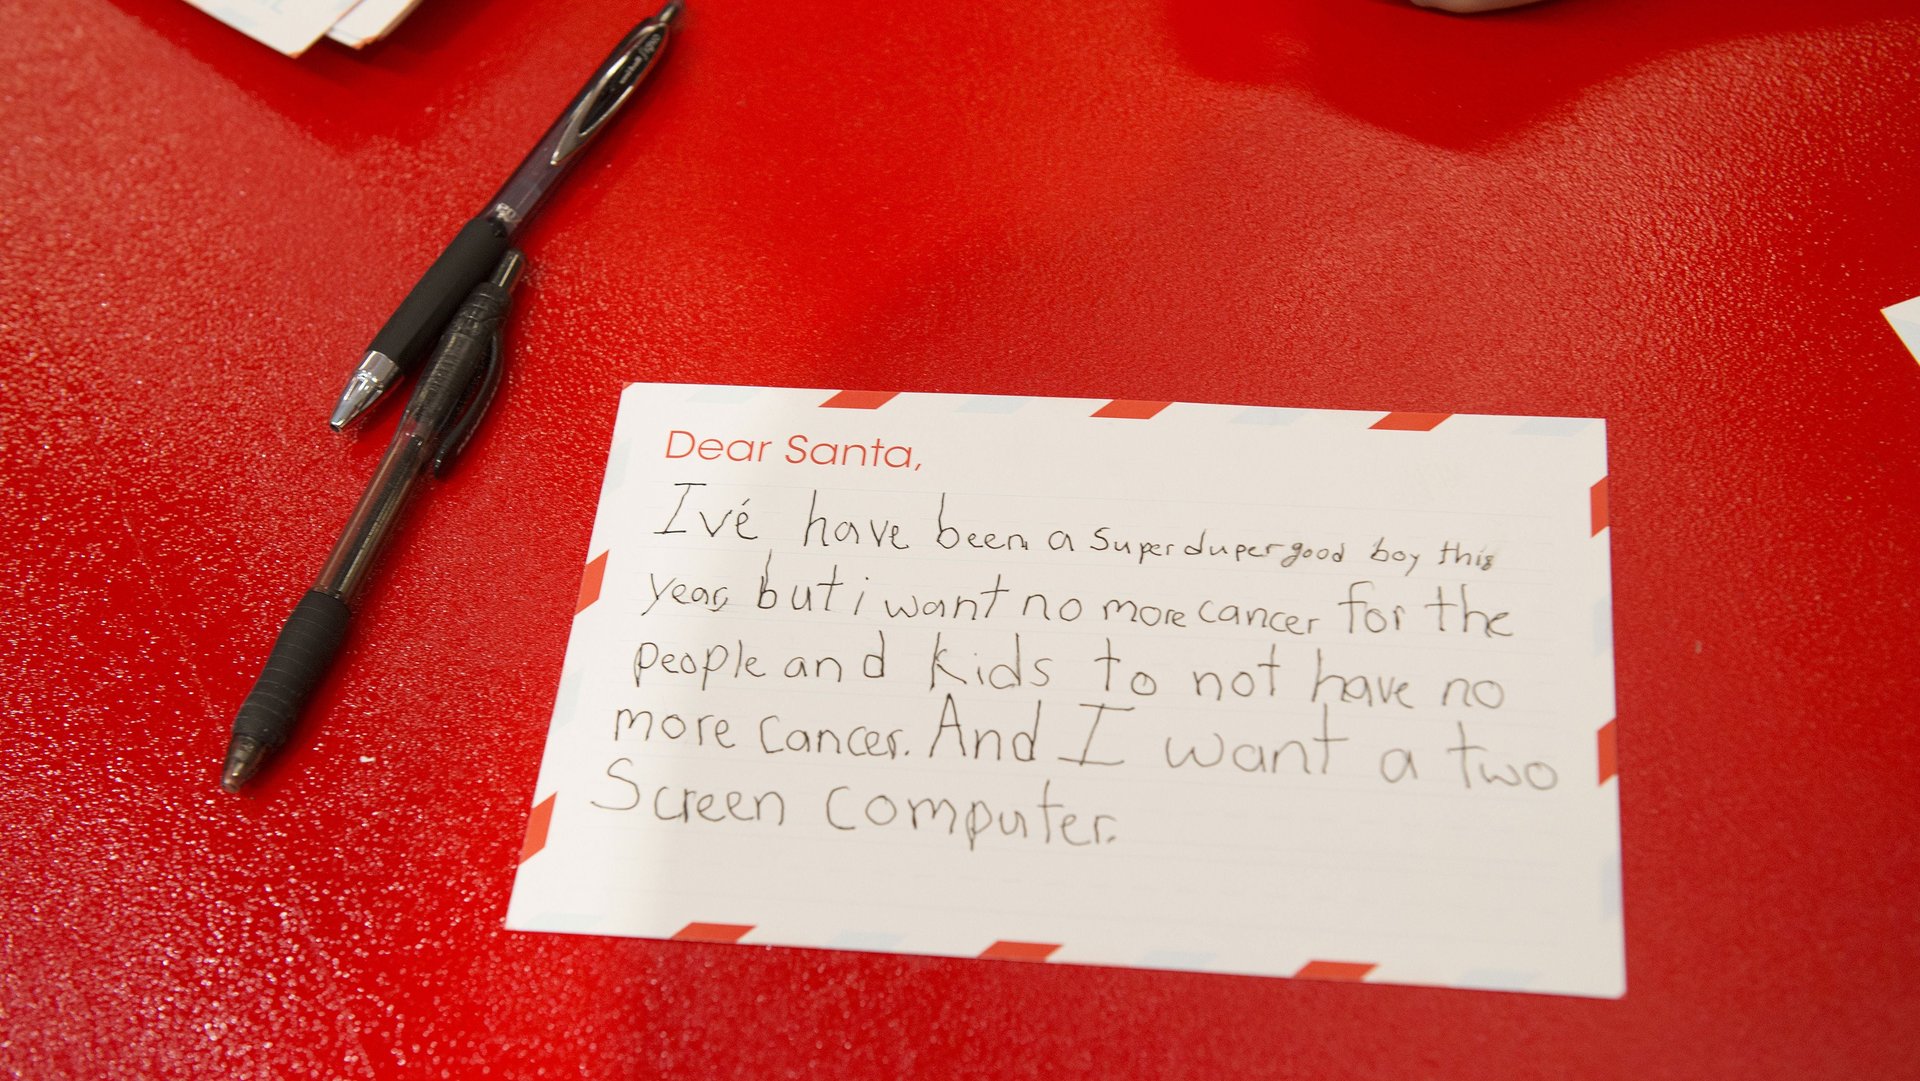 Dear Santa,
Ivé have been a super duper good boy this
year, but i want no more cancer for the
people and kids to not have no
more cancer. And I want a two
Screen computer.